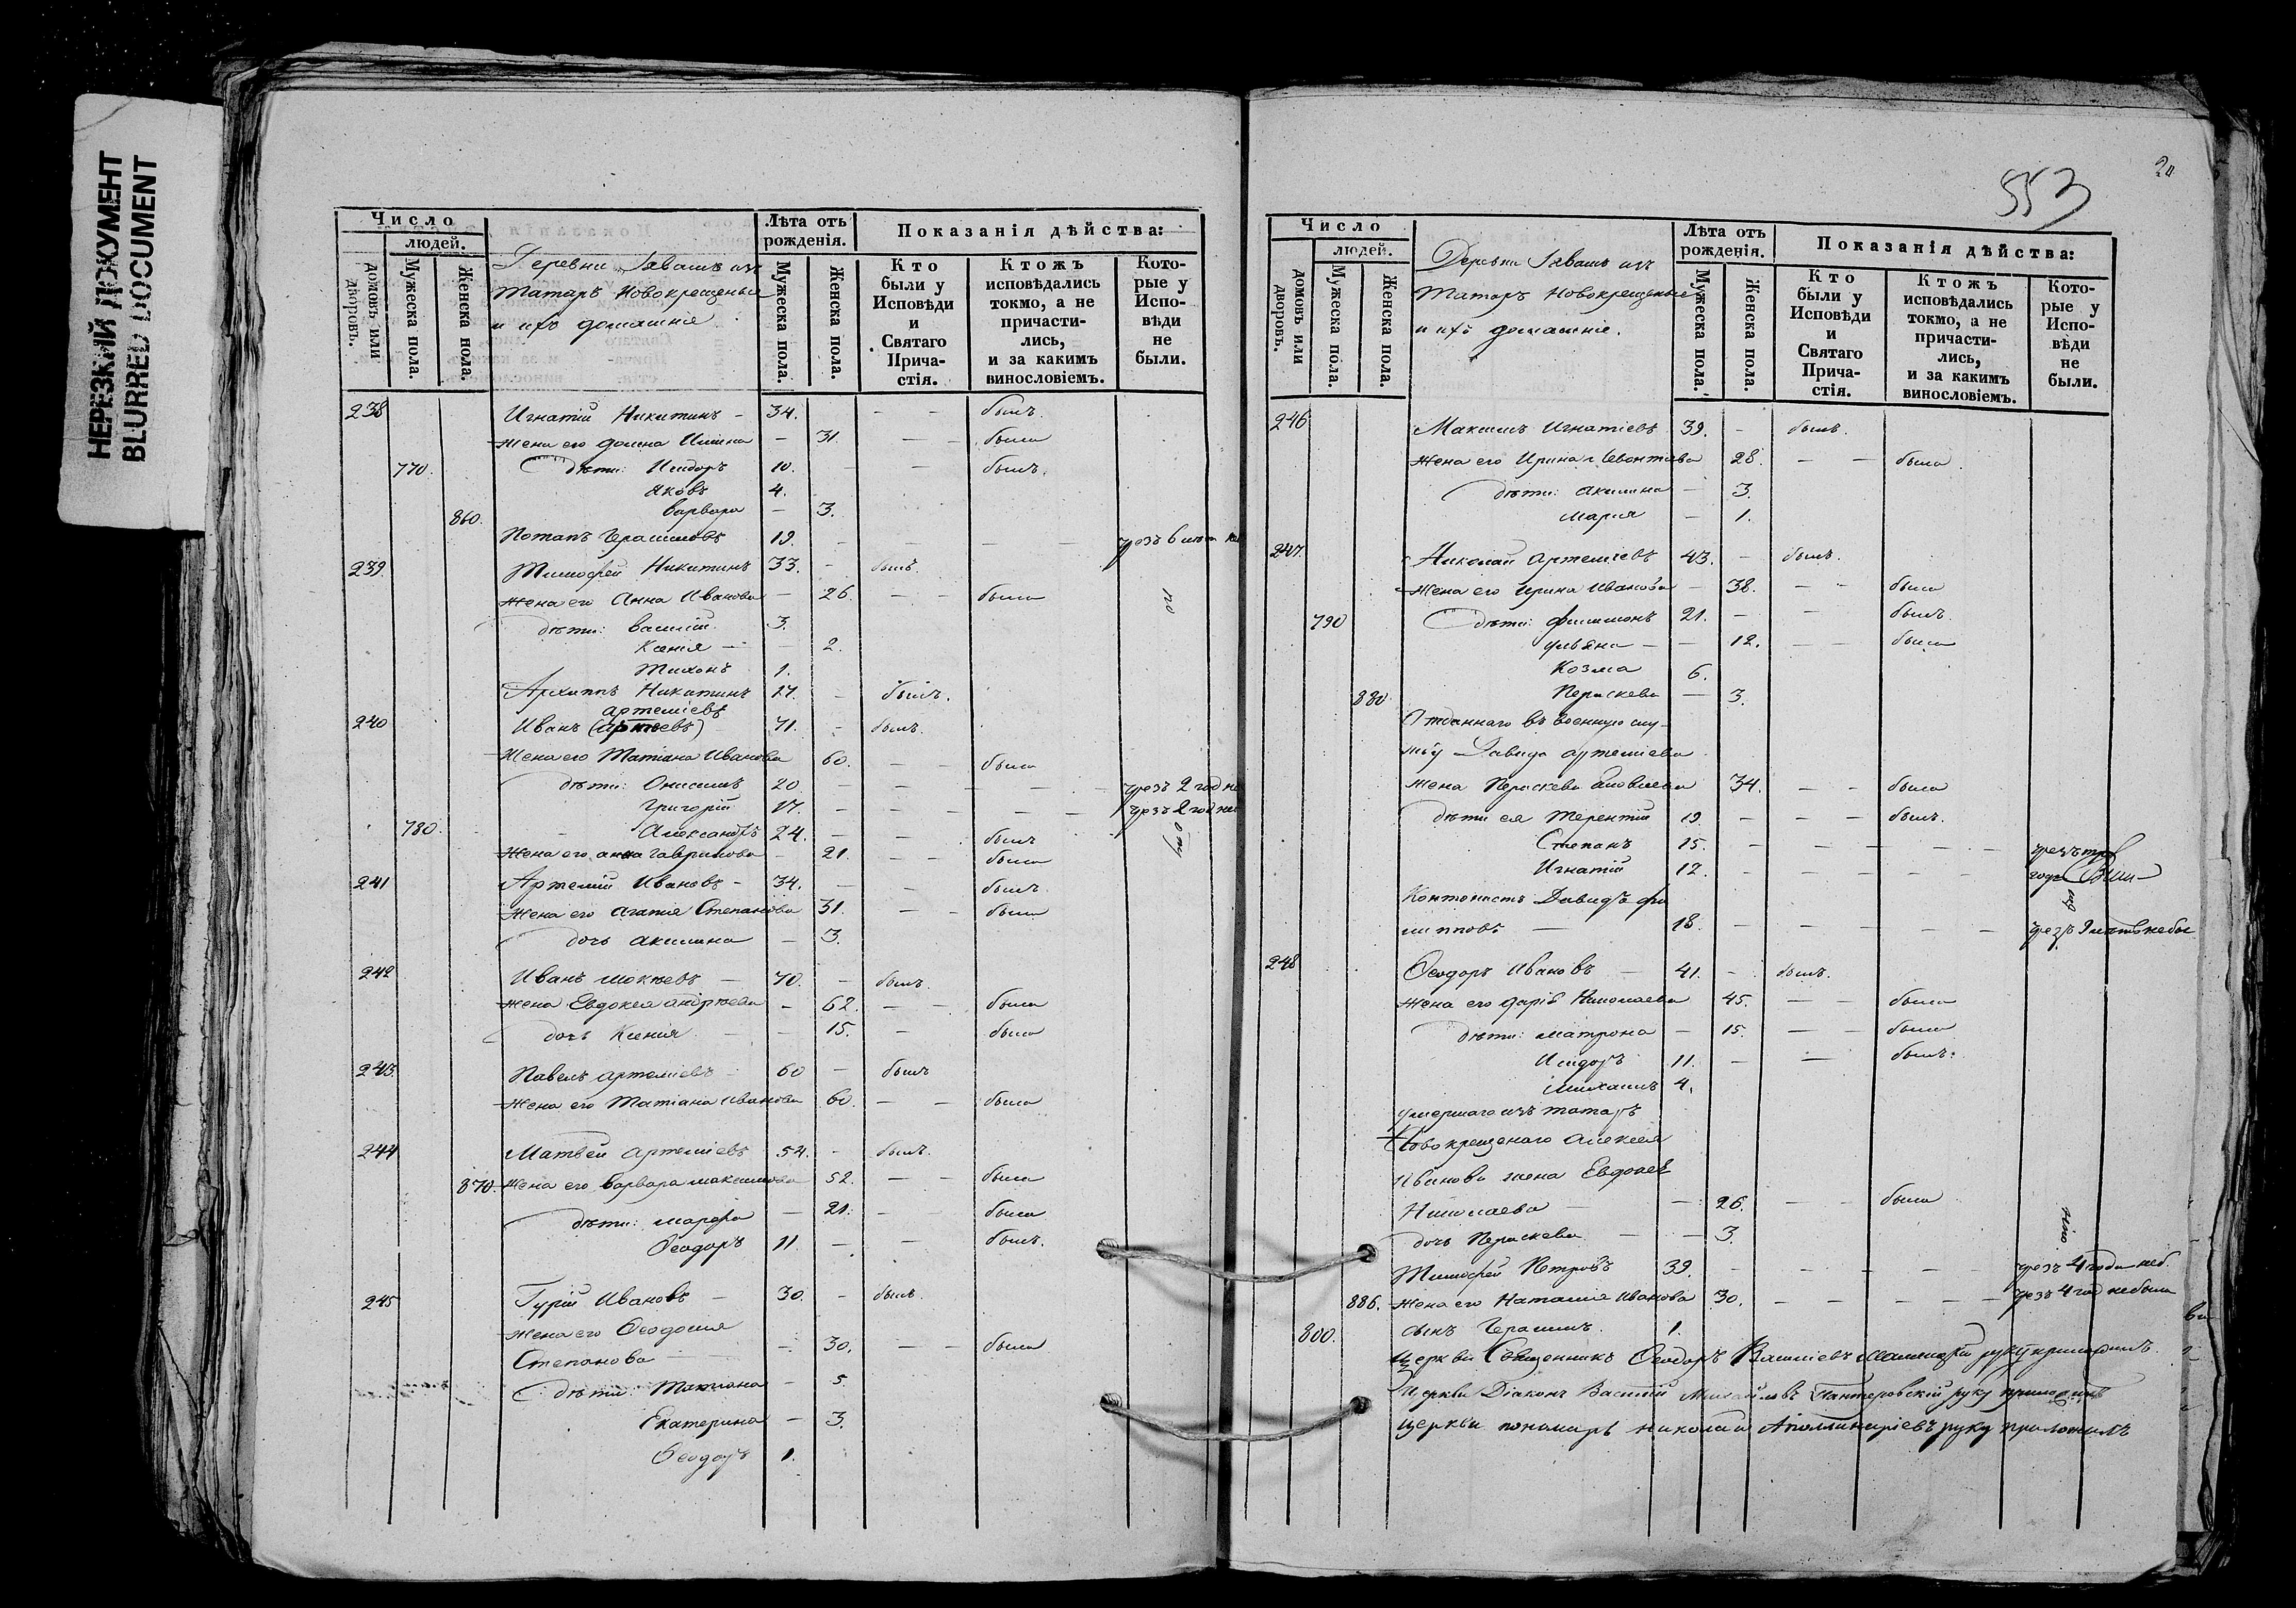 НЕРЕЗКИЙ ДОКУМЕНТ
BLURRED DOCUMENT
Число
людей.
домовъ или дворовъ.
Мужеска пола.
Женска пола.
Деревни из
Татаръ Новокрещеные
и ихъ домашніе
Лѣта отъ рожденія.
Мужеска пола.
Женска пола.
Показанія дѣйства:
Кто были у Исповѣди и Святаго Прича-стія.
Ктожъ исповѣдались токмо, а не причасти-лись, и за какимъ винословіемъ.
Кото-рые у Испо-вѣди не были.
238 Игнатій Никитинъ - 34. - - былъ.
жена его - 31. - - была
770. дѣти: Исидоръ 10. - - былъ.
Яковъ 4.
860. Варвара - 3.
Потапъ Герасимовъ 19. - - - - чрезъ 6
239. Тимофей Никитинъ 33. - былъ.
жена его Анна Иванова - 26. - - была
по
дѣти: Василій 3.
Ксенія - - 2.
Тихонъ 1.
Архиппъ Никитинъ 27. - былъ.
Артеміевъ
240 Иванъ 71. - былъ.
Жена его Татіана Иванова 60. - - была
дѣти: Онисимъ 20. - - - - - чрезъ 2 год
Григорій 17. - - - - - чрезъ 2 год
780. - Александръ 24. - - былъ
жена его анна Гаврилова - 21. - - была
241 Артемій Ивановъ - 34. - - былъ
жена его агафія Степанова 31. - - была
дочь акилина - 3.
242 Иванъ - 70. - былъ.
жена Евдокея - 62. - - была
дочь Ксенія - - 15. - была
243. Павелъ артеміевъ - 60 - былъ
жена его Татіана иванова 60. - - была
244 Матвей артеміевъ 54. - былъ.
870. жена его варвара максимова 52. - - была
дѣти: марфа - 21. - - была
Ѳеодоръ 11. - - былъ.
245 Гурій Ивановъ - 30. - былъ.
жена его Ѳеодосія
Степанова - - 30. - - была
дѣти: Татіана - 5
Екатерина - 3.
Ѳеодоръ 1.
553
Число
людей.
домовъ или дворовъ.
Мужеска пола.
Женска пола.
Деревни изъ
Татаръ Новокрещеные
и ихъ домашніе.
Лѣта отъ рожденія.
Мужеска пола.
Женска пола.
Показанія дѣйства:
Кто были у Исповѣди и Святаго Прича-стія.
Ктожъ исповѣдались токмо, а не причасти-лись, и за какимъ винословіемъ.
Кото-рые у Испо-вѣди не были.
246 Максимъ Игнатіевъ 39. - былъ.
жена его Ирина Леонтіева 28. - - была.
дѣти: акилина - 3.
Марія - 1.
247. Николай артеміевъ 43. - былъ.
жена его ирина иванова - 38. - - была
790 дѣти: филимонъ 21. - - былъ.
ульяна - - 12. - - была
Козма 6.
880 Параскева - 3.
Отданнаго въ военную слу-
жбу Давида артеміева
жена Параскева 34. - - была
дѣти ея Терентій 19. - - - былъ.
Степанъ 15. - - - - - чрезъ
Игнатій 12. - - - - - года
Кантонистъ Давидъ фи
липповъ - 18. - - - - - чрезъ 9 лѣтъ не бы
248 Ѳеодоръ Ивановъ - 41. - былъ.
жена его дарія Николаева 45. - - была
дѣти: матрона - 15. - - была
Исидоръ 11. - - былъ.
Михаилъ 4.
умершаго изъ татаръ
Новокрещенаго алексея
Иванова жена Евдокея
Николаева - - 26. - - была
дочь Параскева - - 3.
Тимофей Петровъ 39. - - - - - чрезъ 4 года неб.
886. жена его Наталія Иванова 30. - - - - - чрезъ 4 год небыла
800. сынъ Герасимъ. 1.
Церкви Священникъ Ѳеодоръ Василіевъ руку приложилъ.
Церкви Діаконъ Василій Михайловъ руку приложилъ
Церкви пономарь николай Аполлинаріевъ руку приложилъ